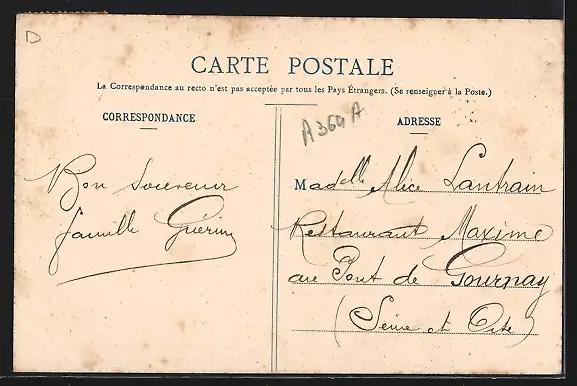 D
CARTE POSTALE
La Correspondance au recto n'est pas acceptée par tous les Pays Étrangers. (Se renseigner à la Poste.)
CORRESPONDANCE
ADRESSE
A364A
Bon Souvenir
famille Guérin
Madelle Alice Lantrain
Restaurant Maxime
au Pont de Gournay
(Seine et Oise)